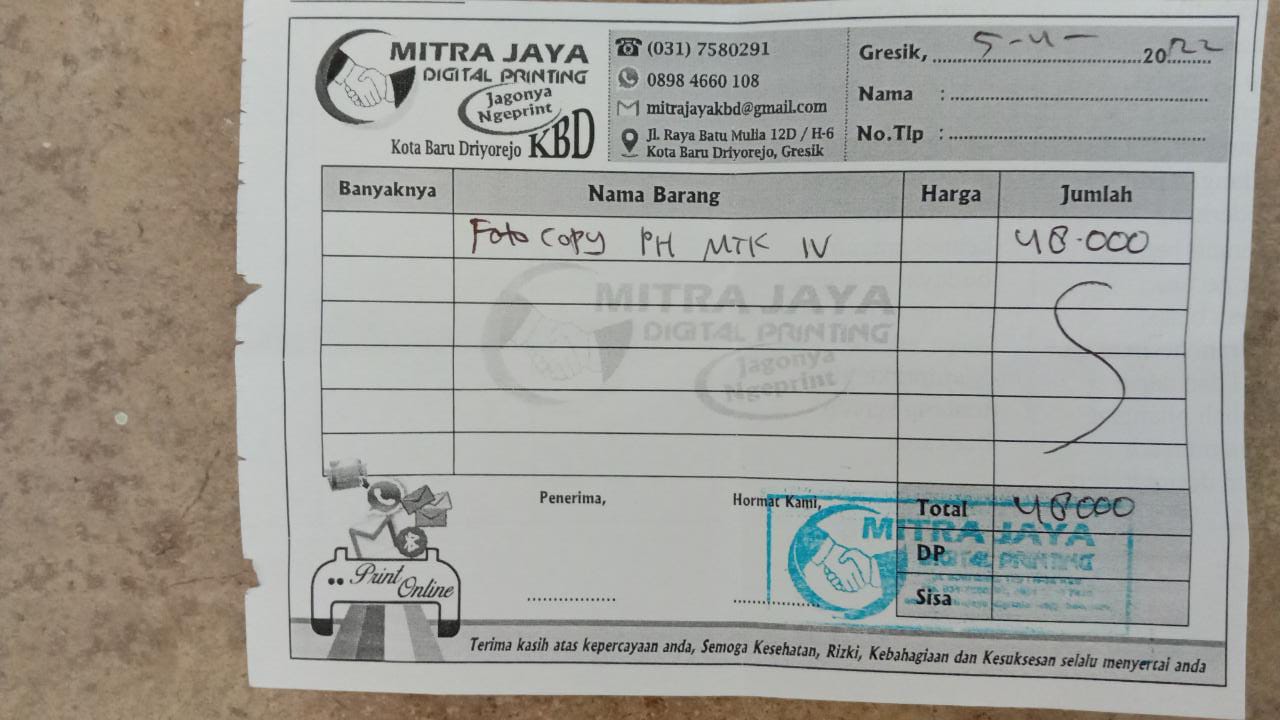 MITRA JAYA
DIGITAL PRINTING
Jagonya
Ngeprint
Kota Baru Driyorejo KBD
(031) 7580291
0898 4660 108
mitrajayakbd@gmail.com
Jl. Raya Batu Mulia 12D / H-6
Kota Baru Driyorejo, Gresik
Gresik, 5-4- 2022
Nama :
No.Tlp :
Banyaknya Nama Barang Harga Jumlah
Foto copy PH MTK IV 48.000
MITRA JAYA
DIGITAL PRINTING
Jagonya
Ngeprint
Penerima, Hormat Kami, Total 48000
MITRA JAYA
DIGITAL PRINTING
DP
Sisa
Print
Online
Terima kasih atas kepercayaan anda, Semoga Kesehatan, Rizki, Kebahagiaan dan Kesuksesan selalu menyertai anda